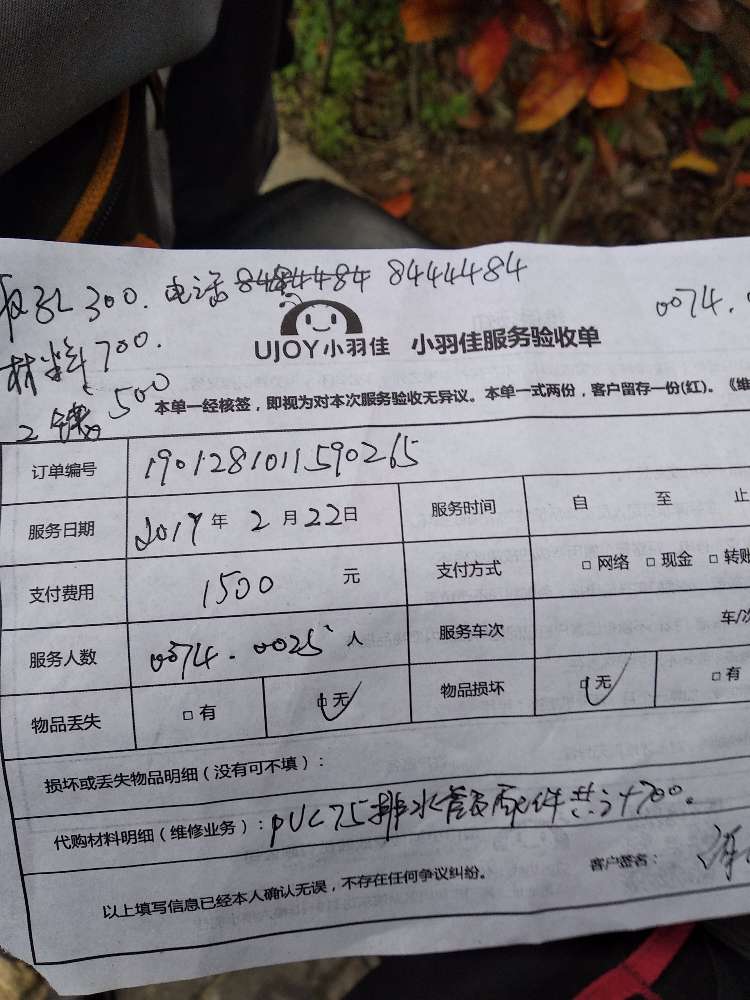 300. 电话 8444484
0074.
材料700.
UJOY小羽佳 小羽佳服务验收单
500
本单一经核签，即视为对本次服务验收无异议。本单一式两份，客户留存一份(红)。《维
订单编号 1901281011590265
服务日期 2019年 2月22日 服务时间 自 至 止
支付费用 1500 元 支付方式 □网络 □现金 □转账
服务人数 0074.0025 人 服务车次 车/次
物品丢失 □有 无 物品损坏 无 □有
损坏或丢失物品明细（没有可不填）：
代购材料明细（维修业务）：PVC75排水管及配件共计700.
以上填写信息已经本人确认无误，不存在任何争议纠纷。 客户签名：